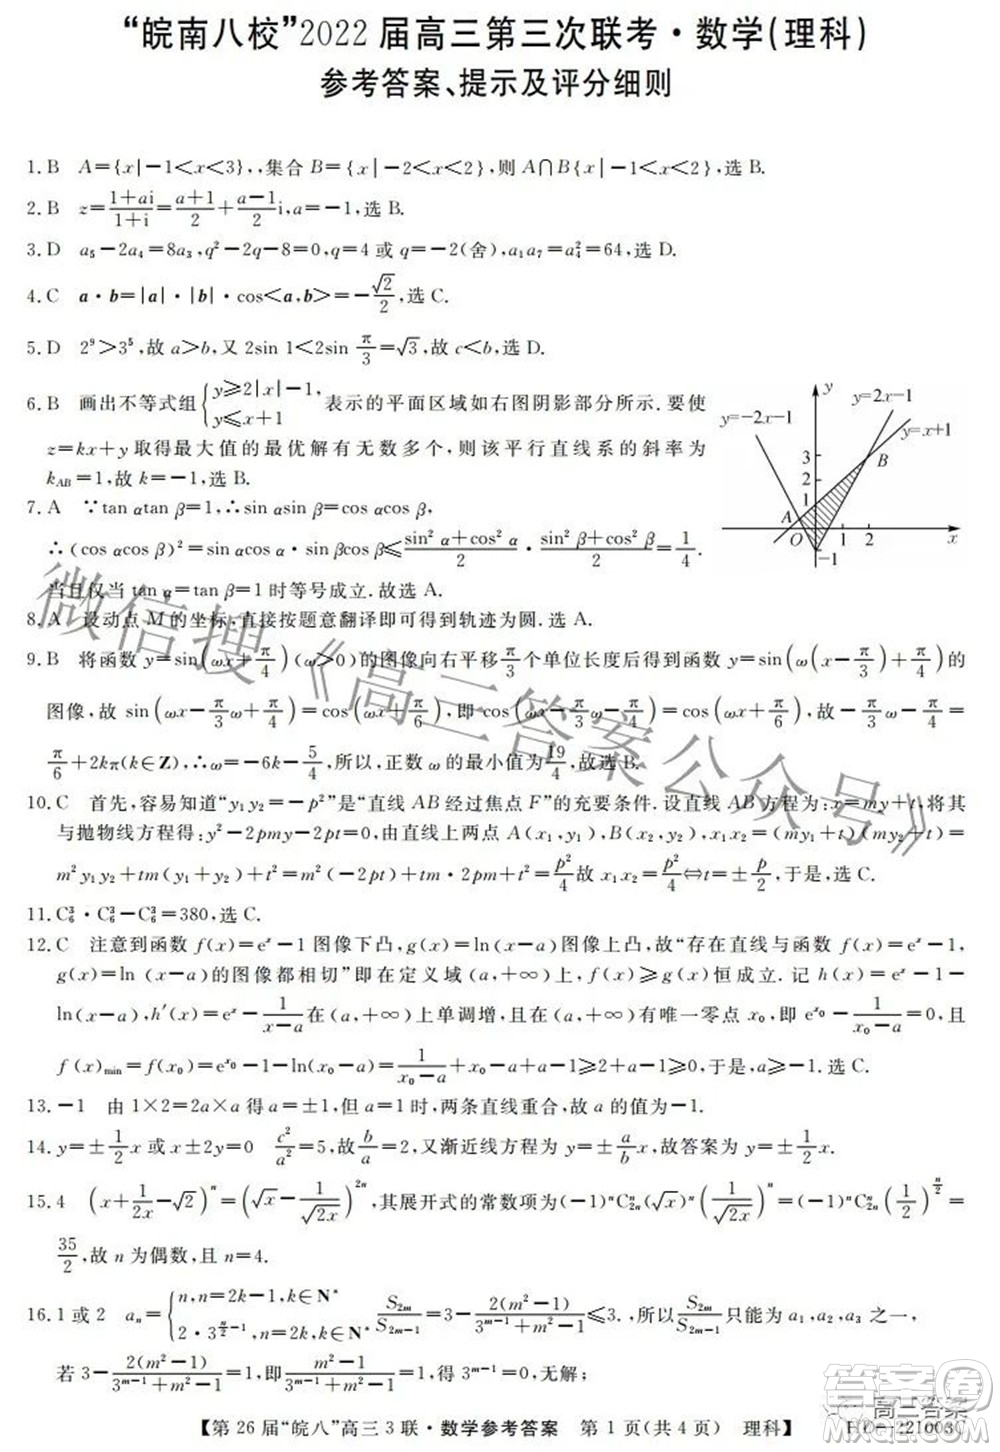 “皖南八校”2022届高三第三次联考·数学(理科)
参考答案、提示及评分细则
1. B A={x|-1<x<3},,集合 B={x|-2<x<2},则 A∩B{x|-1<x<2},选 B.
2. B z=\frac{1+ai}{1+i}=\frac{a+1}{2}+\frac{a-1}{2}i,a=-1,选 B.
3. D a₅-2a₄=8a₃,q²-2q-8=0,q=4 或 q=-2(舍),a₁a₇=a₄²=64,选 D.
4. C a·b=|a|·|b|·cos<a,b>=-\frac{\sqrt{2}}{2},选 C.
5. D 2⁹>3⁵,故 a>b,又 2sin 1<2sin \frac{π}{3}=\sqrt{3},故 c<b,选 D.
6. B 画出不等式组{y≥2|x|-1, y≤x+1 表示的平面区域如右图阴影部分所示.要使
z=kx+y 取得最大值的最优解有无数多个,则该平行直线系的斜率为
k_{AB}=1,故 k=-1,选 B.
y=-2x-1
y
y=2x-1
y=x+1
3
2
1
A
B
O
1
2
-1
x
7. A ∵tan αtan β=1,∴sin αsin β=cos αcos β,
∴(cos αcos β)²=sin αcos α·sin βcos β≤\frac{sin² α+cos² α}{2}·\frac{sin² β+cos² β}{2}=\frac{1}{4}.
当且仅当 tan α=tan β=1 时等号成立.故选 A.
8. A 设动点 M 的坐标,直接按题意翻译即可得到轨迹为圆.选 A.
9. B 将函数 y=sin(ωx+\frac{π}{4})(ω>0)的图像向右平移\frac{π}{3}个单位长度后得到函数 y=sin(ω(x-\frac{π}{3})+\frac{π}{4})的
图像,故 sin(ωx-\frac{π}{3}ω+\frac{π}{4})=cos(ωx+\frac{π}{6}),即 cos(ωx-\frac{π}{3}ω-\frac{π}{4})=cos(ωx+\frac{π}{6}),故-\frac{π}{3}ω-\frac{π}{4}=
\frac{π}{6}+2kπ(k∈Z),∴ω=-6k-\frac{5}{4},所以,正数 ω 的最小值为\frac{19}{4},故选 B.
10. C 首先,容易知道“y₁y₂=-p²”是“直线 AB 经过焦点 F”的充要条件.设直线 AB 方程为:x=my+t,将其
与抛物线方程得:y²-2pmy-2pt=0,由直线上两点 A(x₁,y₁),B(x₂,y₂),x₁x₂=(my₁+t)(my₂+t)=
m²y₁y₂+tm(y₁+y₂)+t²=m²(-2pt)+tm(2pm)+t²=t²=\frac{p²}{4}故 x₁x₂=\frac{p²}{4}⇔t=±\frac{p}{2},于是,选 C.
11. C₆³·C₆³-C₆³=380,选 C.
12. C 注意到函数 f(x)=eˣ-1 图像下凸,g(x)=ln(x-a)图像上凸,故“存在直线与函数 f(x)=eˣ-1,
g(x)=ln (x-a)的图像都相切”即在定义域(a,+∞)上,f(x)≥g(x)在(a,+∞)恒成立.记 h(x)=eˣ-1-
ln(x-a),h'(x)=eˣ-\frac{1}{x-a}在(a,+∞)上单调增,且在(a,+∞)有唯一的零点 x₀,即e^{x₀}-\frac{1}{x₀-a}=0,且
f(x)_{min}=f(x₀)=e^{x₀}-1-ln(x₀-a)=\frac{1}{x₀-a}+x₀-a+a-1≥2+a-1≥0,故 a≥-1,故选 C.
13. -1 由 1×2=2a×a 得 a=±1,但 a=1 时,两条直线重合,故 a 的值为-1.
14. y=±\frac{1}{2}x 或 x±2y=0 \frac{c²}{a²}=5,故\frac{b}{a}=2,又渐近线方程为 y=±\frac{a}{b}x,故答案为 y=±\frac{1}{2}x.
15. 4 (x+\frac{1}{2x}-\sqrt{2})^n=(\sqrt{x}-\frac{1}{\sqrt{2x}})^{2n},其展开式的常数项为(-1)^n C_{2n}^n(\sqrt{x})^n(\frac{1}{\sqrt{2x}})^n=(-1)^n C_{2n}^n(\frac{1}{2})^{\frac{n}{2}}=
\frac{35}{2},故 n 为偶数,且 n=4.
16. 1 或 2 a_n={n,n=2k-1,k∈N* 2·3^{\frac{n}{2}-1},n=2k,k∈N* \frac{S_{2m}}{S_{2m-1}}=3-\frac{2(m²-1)}{3^{m-1}+m²-1}≤3.,所以\frac{S_{2m}}{S_{2m-1}}只能为 a₁,a₂,a₃ 之一,
若 3-\frac{2(m²-1)}{3^{m-1}+m²-1}=1,即\frac{m²-1}{3^{m-1}+m²-1}=1 得 3^{m-1}=0,无解;
【第 26 届“皖八”高三 3 联·数学参考答案 第 1 页(共 4 页) 理科】
HD-221003C
微信搜《高三答案公众号》
高三答案